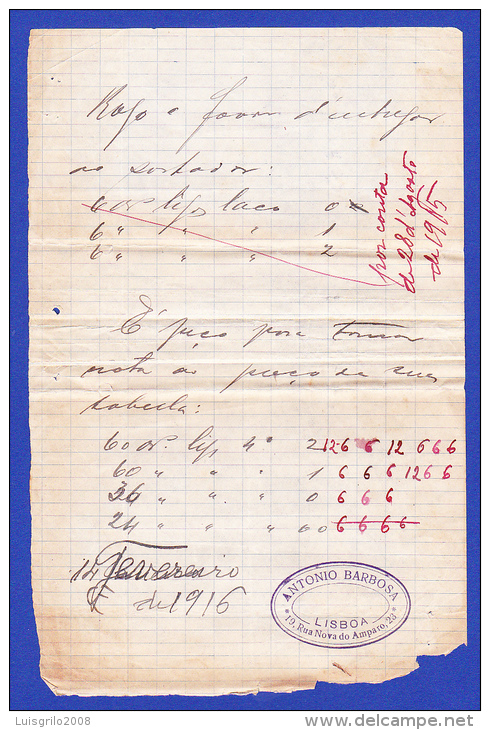 Rogo o favor d'entregar
ao portador:
6 " " " 1
6 " " " 2
por conta
de 28 d'Agosto
de 1915
E peço para tomar
nota ao preço da sua
tabella:
60 " " " 1 6 6 6 12 6 6
36 " " " 0 6 6 6
24 " " " 00 6 6 6 6
14 Fevereiro
de 1916
ANTONIO BARBOSA
LISBOA
* 19, Rua Nova do Amparo, 23 *
Luisgrilo2008
www.delcampe.net